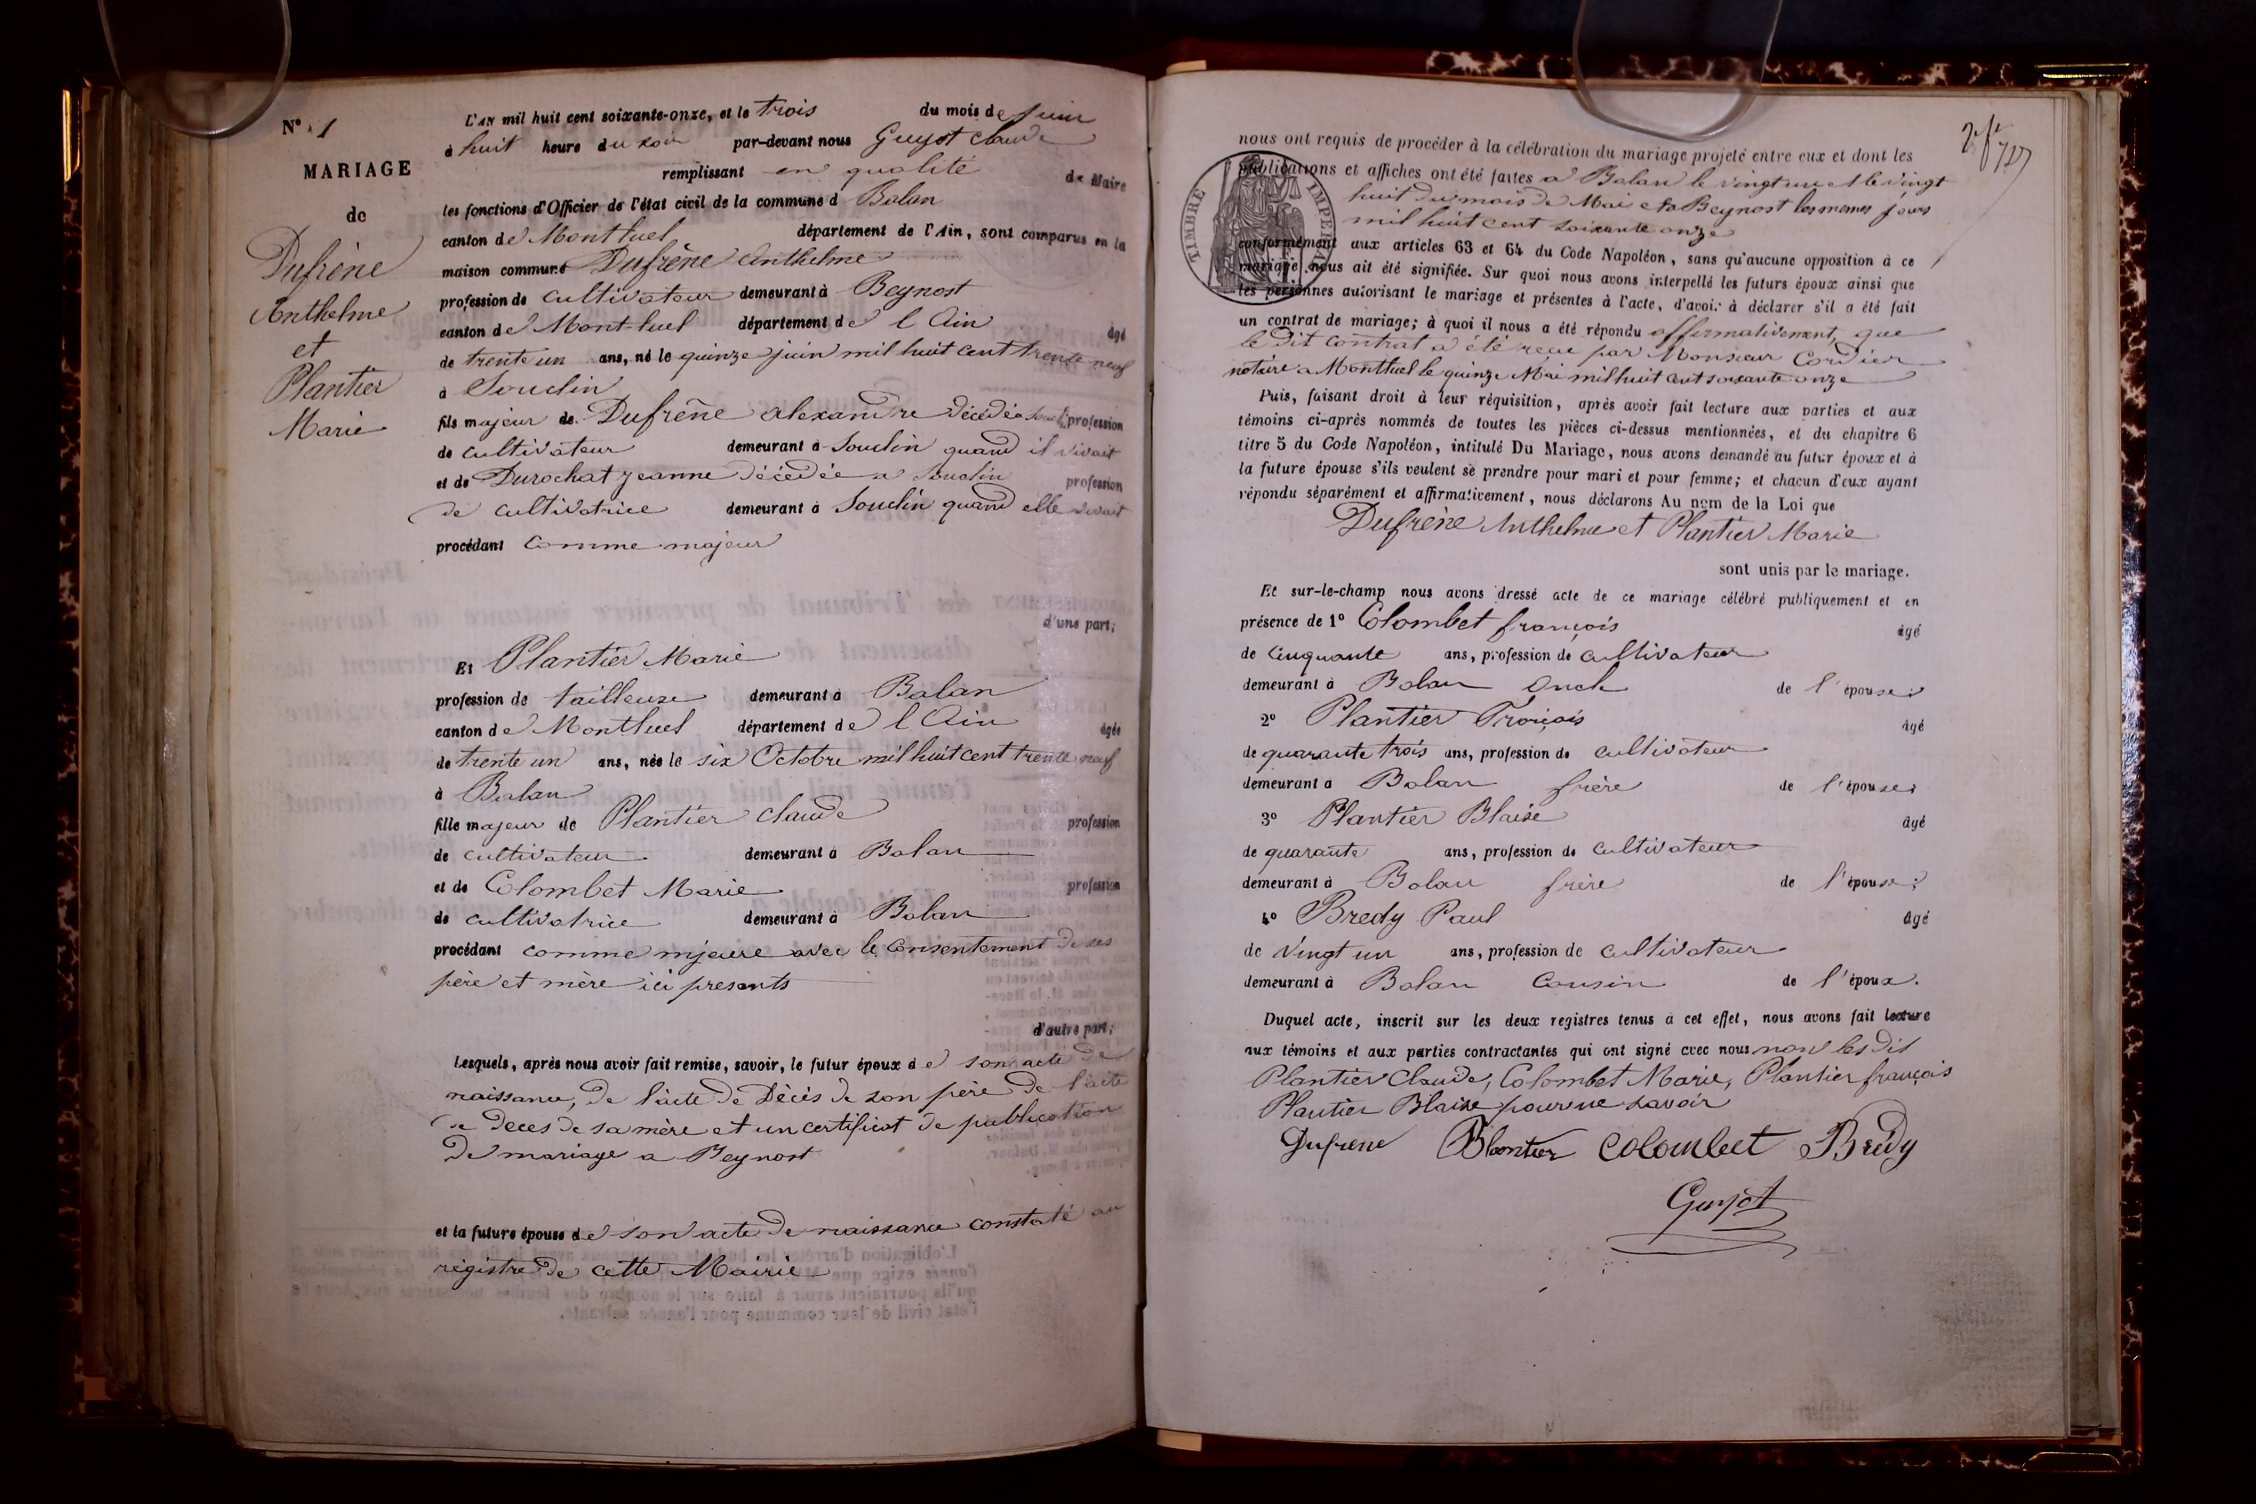 N° 1
MARIAGE
de
Dufrène
Anthelme
et
Plantier
Marie
L'AN mil huit cent soixante-onze, et le trois du mois de juin
à huit heure du soir par-devant nous Guyot Claude
remplissant en qualité de Maire
les fonctions d'Officier de l'état civil de la commune d Balan
canton de Montluel département de l'Ain, sont comparus en la
maison commune Dufrène Anthelme
profession de cultivateur demeurant à Beynost
canton de Montluel département de l Ain âgé
de trente un ans, né le quinze juin mil huit cent trente neuf
à Souclin
fils majeur de Dufrène alexandre décédé à profession
de cultivateur demeurant à Souclin quand il vivait
et de Durochat jeanne décédée a Souclin profession
de cultivatrice demeurant à Souclin quand elle vivait
procédant comme majeur
d'une part;
Et Plantier Marie
profession de tailleuse demeurant à Balan
canton de Montluel département de l Ain âgée
de trente un ans, née le six Octobre mil huit cent trente neuf
à Balan
fille majeur de Plantier claude profession
de cultivateur demeurant à Balan
et de Colombet Marie profession
de cultivatrice demeurant à Balan
procédant comme mjeure avec le consentement de ses
père et mère ici presents
d'autre part;
Lesquels, après nous avoir fait remise, savoir, le futur époux de son acte de
naissance, de l'acte de Décès de son père de l'acte
de deces de sa mère et un certificat de publication
de mariage a Beynost
et la future épouse de son acte de naissance constaté au
régistre de cette Mairie
nous ont requis de procéder à la célébration du mariage projeté entre eux et dont les
publications et affiches ont été faites a Balan le vingt un et le vingt
huit du mois de Mai et a Beynost les memes jours
mil huit cent soixante onze
TIMBRE IMPERIAL
conformément aux articles 63 et 64 du Code Napoléon, sans qu'aucune opposition à ce
mariage nous ait été signifiée. Sur quoi nous avons interpellé les futurs époux ainsi que
les personnes autorisant le mariage et présentes à l'acte, d'avoir à déclarer s'il a été fait
un contrat de mariage; à quoi il nous a été répondu affirmativement, que
le dit contrat a été reçu par Monsieur Cordier
notaire a Montluel le quinze Mai mil huit cent soixante onze
Puis, faisant droit à leur réquisition, après avoir fait lecture aux parties et aux
témoins ci-après nommés de toutes les pièces ci-dessus mentionnées, et du chapitre 6
titre 5 du Code Napoléon, intitulé Du Mariage, nous avons demandé au futur époux et à
la future épouse s'ils veulent se prendre pour mari et pour femme; et chacun d'eux ayant
répondu séparément et affirmativement, nous déclarons Au nom de la Loi que
Dufrène Anthelme et Plantier Marie
sont unis par le mariage.
Et sur-le-champ nous avons dressé acte de ce mariage célébré publiquement et en
présence de 1° Colombet françois âgé
de cinquante ans, profession de cultivateur
demeurant à Balan Oncle de l'épouse;
2° Plantier âgé
de quarante trois ans, profession de cultivateur
demeurant à Balan frère de l'épouse;
3° Plantier Blaise âgé
de quarante ans, profession de cultivateur
demeurant à Balan frère de l'épouse;
4° Bredy Paul âgé
de vingt un ans, profession de cultivateur
demeurant à Balan Cousin de l'époux.
Duquel acte, inscrit sur les deux registres tenus à cet effet, nous avons fait lecture
aux témoins et aux parties contractantes qui ont signé avec nous non les dit
Plantier Claude, Colombet Marie, Plantier françois
Plantier Blaise pour ne savoir
Dufrene Plantier Colombet Bredy
Guyot